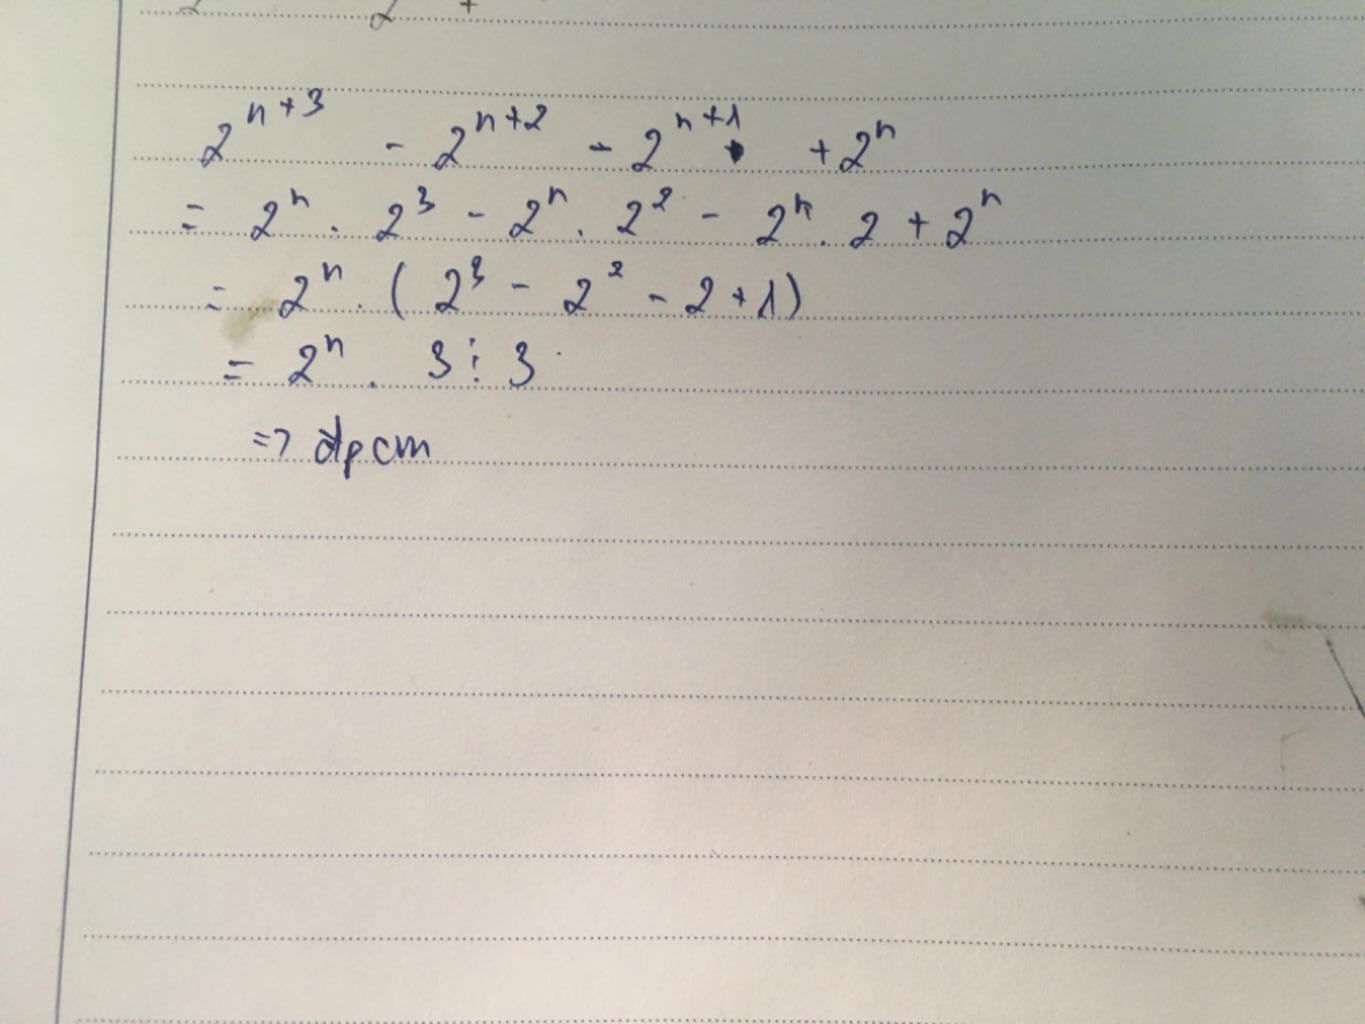 2^{n+3} - 2^{n+2} - 2^{n+1} + 2^n
= 2^n . 2^3 - 2^n . 2^2 - 2^n . 2 + 2^n
= 2^n . ( 2^3 - 2^2 - 2 + 1 )
= 2^n . 3 ⋮ 3
=> đpcm